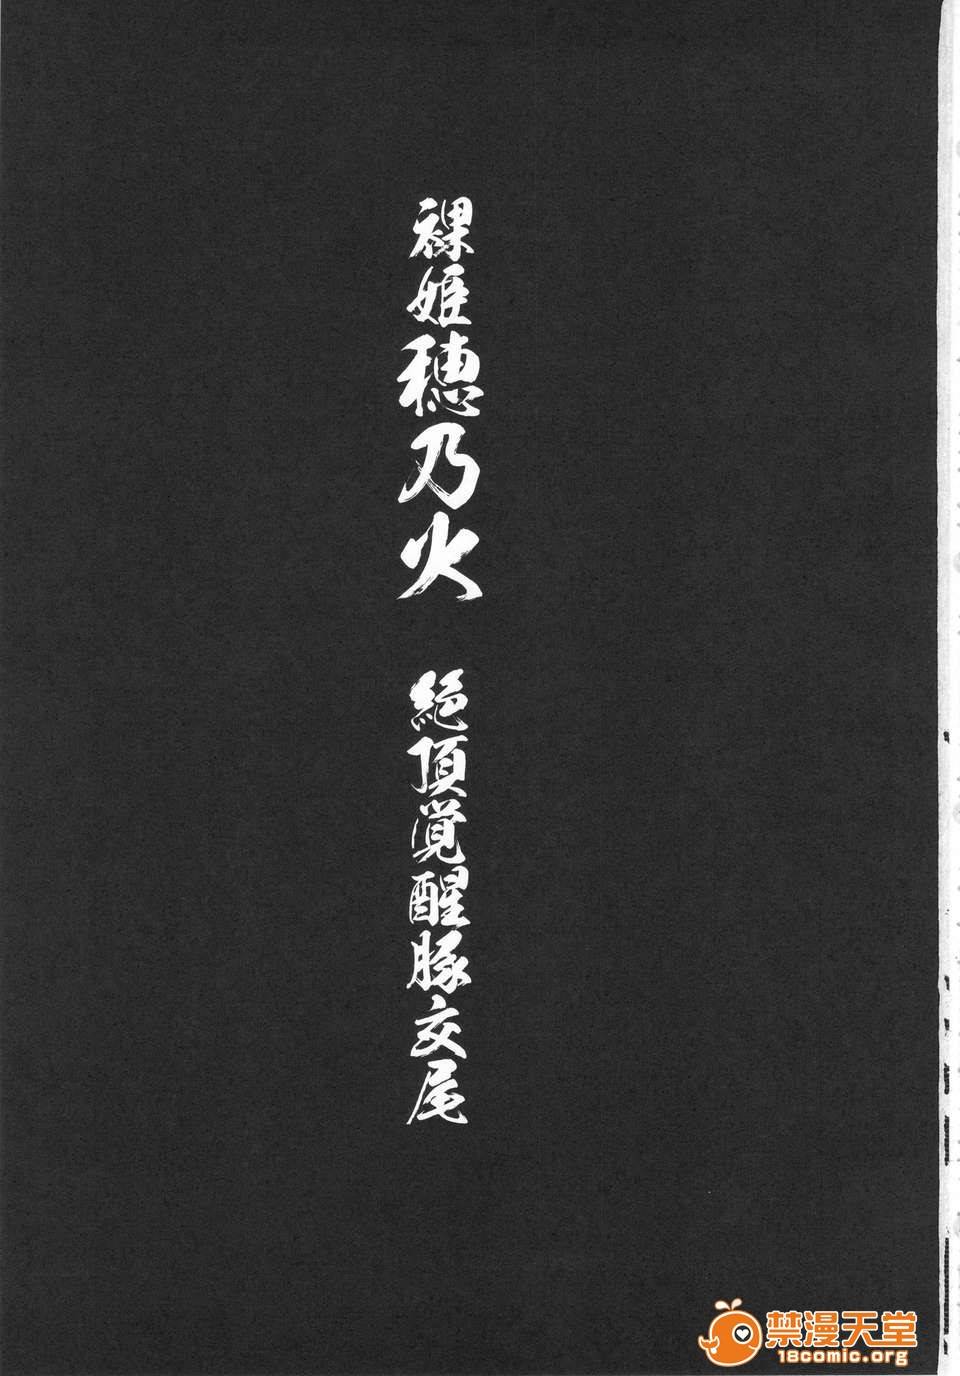 裸姫穂乃火 絶頂覚醒豚交尾
禁漫天堂
18comic.org